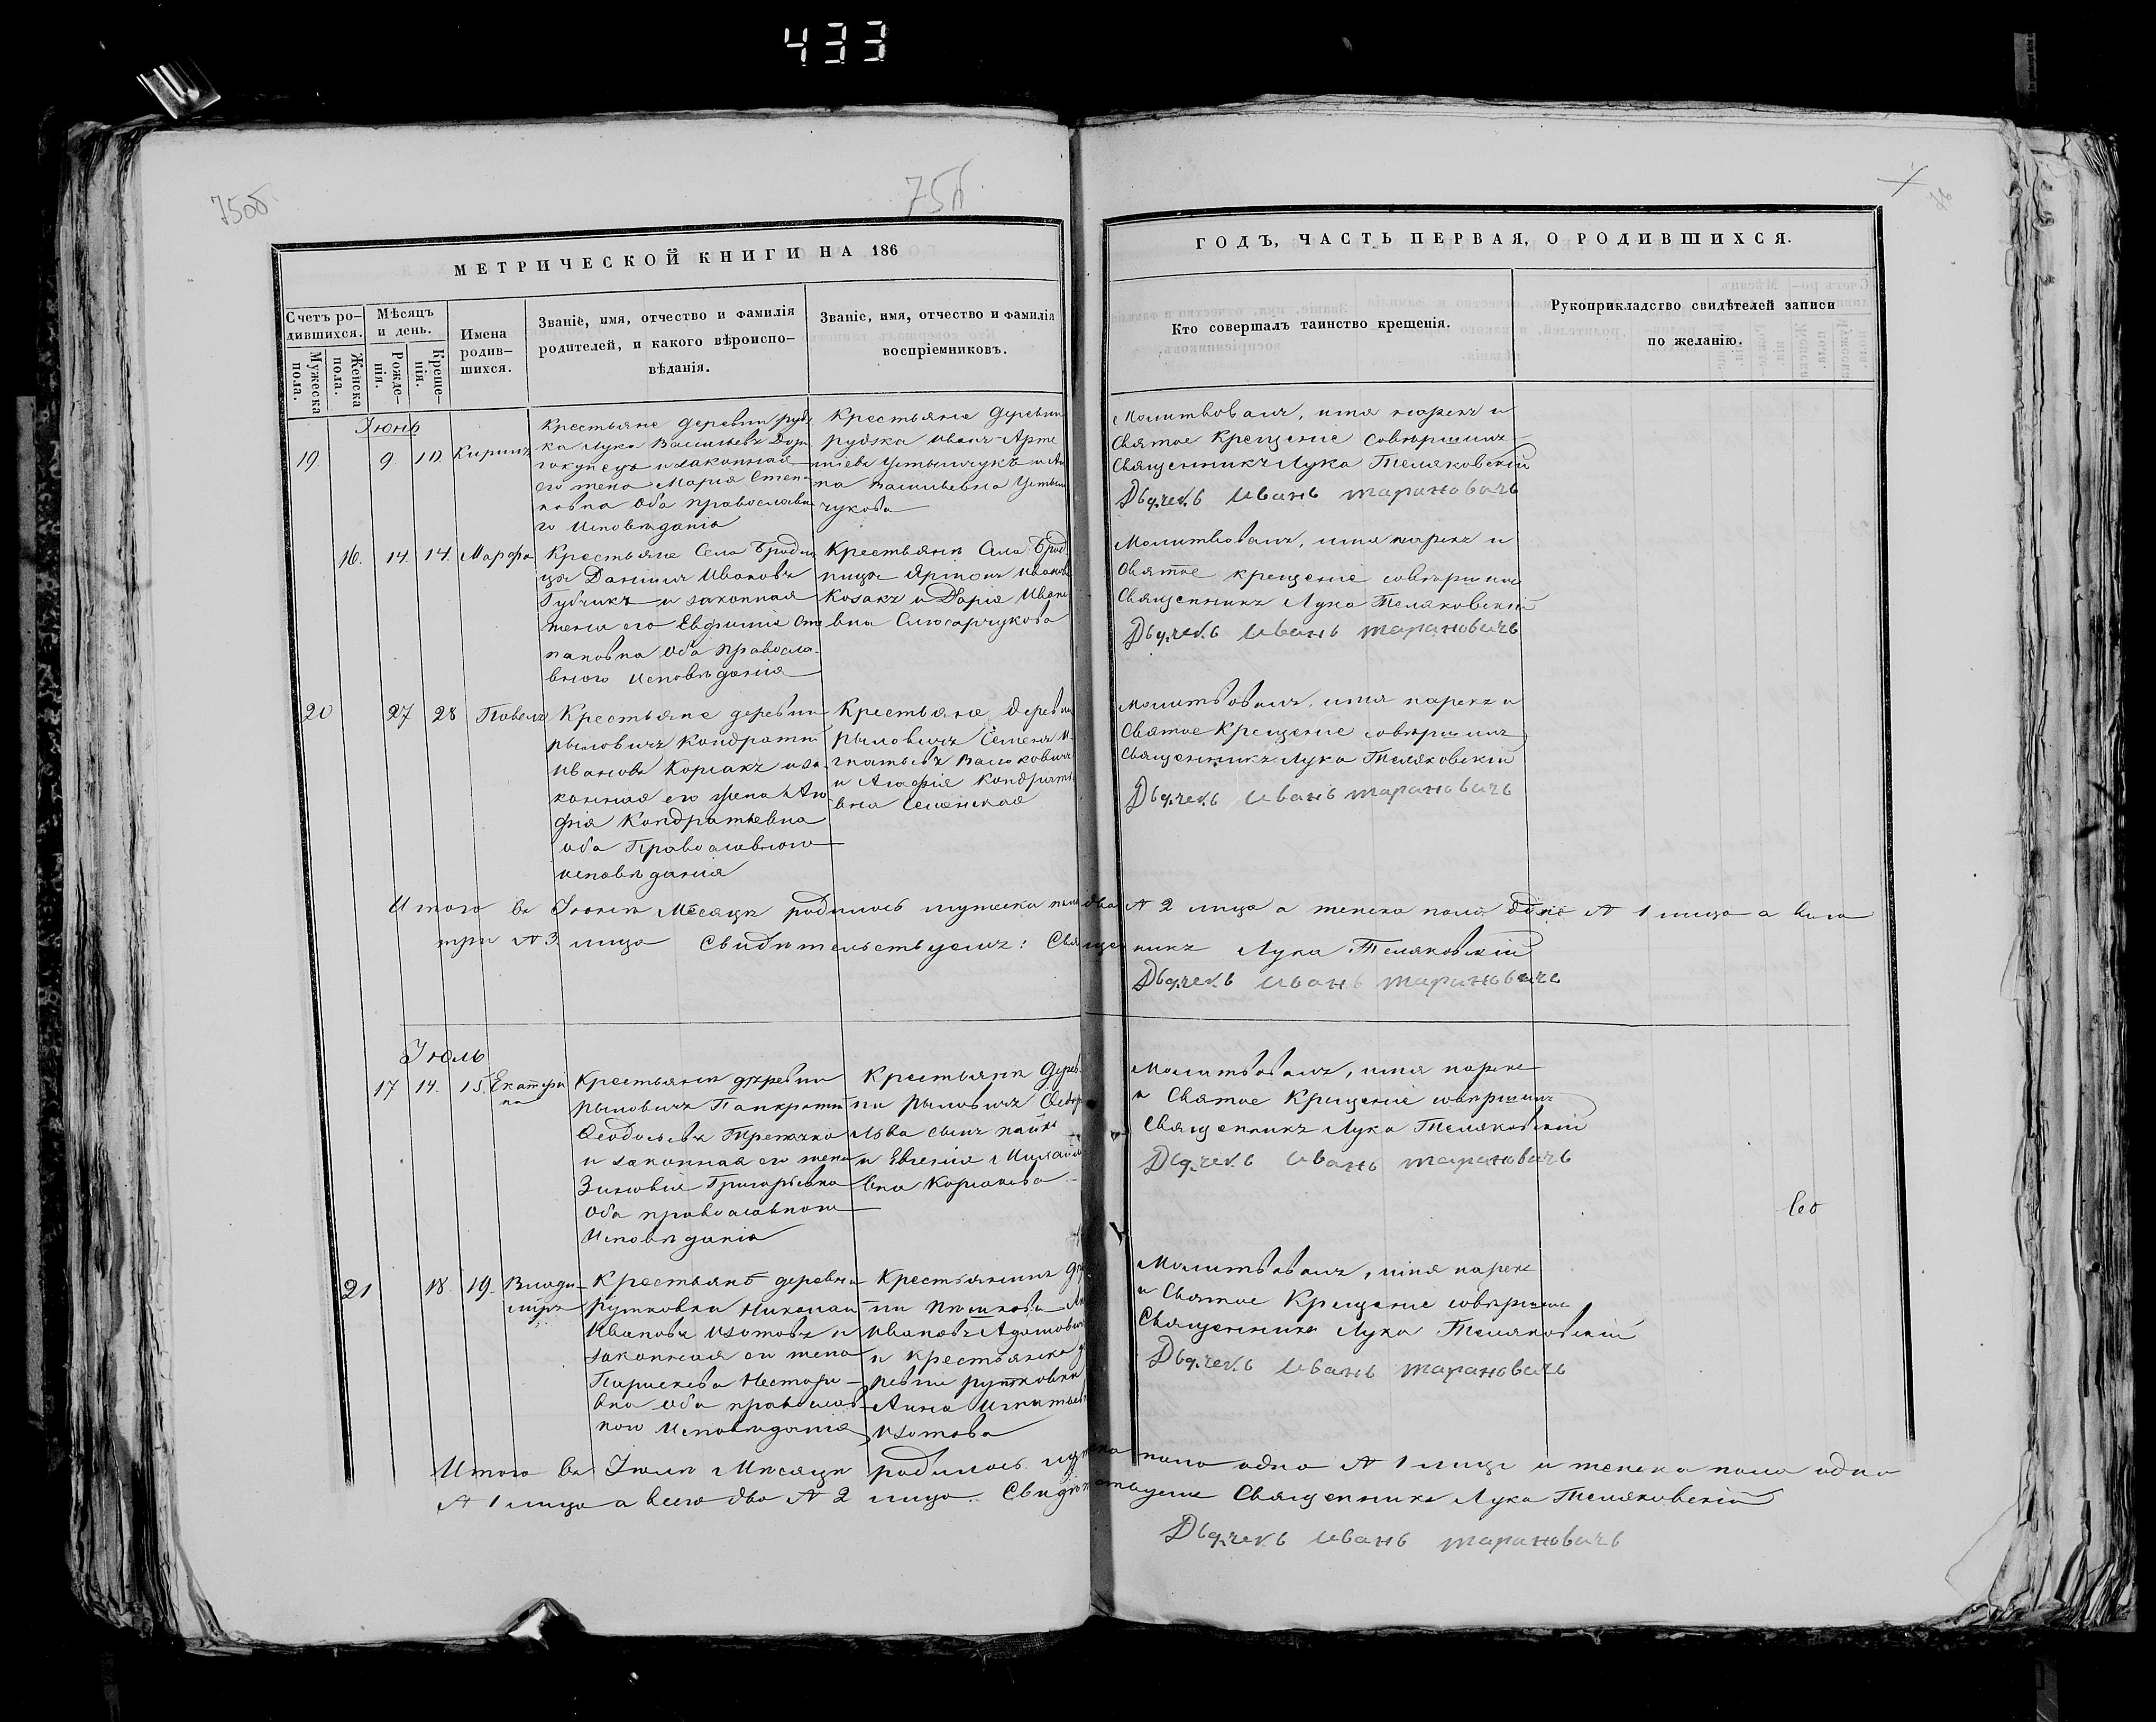 433
75об
75б
МЕТРИЧЕСКОЙ КНИГИ НА 186
Счетъ ро-
дившихся.
Мужеска
пола.
Женска
пола.
Мѣсяцъ
и день.
Рожде-
нія.
Креще-
нія.
Имена
родив-
шихся.
Званіе, имя, отчество и фамилія
родителей, и какого вѣроиспо-
вѣданія.
Званіе, имя, отчество и фамилія
воспріемниковъ.
ГОДЪ, ЧАСТЬ ПЕРВАЯ, О РОДИВШИХСЯ.
Кто совершалъ таинство крещенія.
Рукоприкладство свидѣтелей записи
по желанію.
Іюнь
19 9 10 Кирилъ
Крестьяне деревни руд
ка Лука Васильевъ
и законная
его жена Мария Степа
новна оба православна
го Исповѣданія
Крестьяне деревни
рудка Иванъ Арте
міевъ Устымчукъ и Ан
на Васильевна Устым
чукова
Молитвовалъ, имя нарекъ и
Святое Крещеніе совѣршилъ
Священникъ Лука Теляковскій
Дьячекъ Иванъ Тарановичь
16. 14. 14. Марфа
Крестьяне Села Бродни
ца Даніилъ Ивановъ
Губчикъ и законная
жена его Евфимія Сте
пановна оба правосла-
вного Исповѣданія
Крестьяни Села Брод
ница Иванов
Козакъ и Дарія Ивано
вна Слюсарчукова
Молитвовалъ, имя нарекъ и
Святое крещеніе совѣршилъ
Священникъ Лука Теляковскій
Дьячекъ Иванъ Тарановичь
20 27 28 Павелъ
Крестьяне деревни
рыловичъ Кондратій
Ивановъ Корсакъ и за
конная его жена Ага
фія Кондратьевна
оба Православного
исповѣданія
Крестьяне деревни
рыловичъ Семенъ И
гнатьевъ Васьковичъ
и Агафія Кондратье
вна
Молитвовалъ, имя нарекъ и
Святое Крещеніе совѣршилъ
Священникъ Лука Теляковскій
Дьячекъ Иванъ Тарановичь
Итого въ Іюнѣ Мѣсяцѣ родилось мужеска пола два № 2 лица а женска пола одно № 1 лицо а всего
три № 3 лица Свидѣтельствуемъ: Священникъ Лука Теляковскій
Дьячекъ Иванъ Тарановичь
Іюль
17 14. 15. Екатери
на
Крестьяни деревни
рыловичъ Панкратій
и законная его жена
Зиновія Григорьевна
Оба православного
Исповѣданія
Крестьяни дерев
ни рыловичъ Федоръ
и Евгенія Михайло
вна Корсакова
Молитвовалъ, имя нарекъ
и Святое Крещеніе совѣршилъ
Священникъ Лука Теляковскій
Дьячекъ Иванъ Тарановичь
21 18. 19. Влади
міръ
Крестьянѣ деревни
рутковки Николай
Ивановъ Изотовъ и
законная его жена
Параскева Нестори-
вна оба православ
ного Исповѣданія
Крестьянинъ
Ивановъ Адамович
и крестьянка де
ревни рутковки
Анна Игнатьев
Изотова
Молитвовалъ, имя нарекъ
и Святое Крещеніе совѣршилъ
Священникъ Лука Теляковскій
Дьячекъ Иванъ Тарановичь
Итого въ Іюлѣ Мѣсяцѣ родилось мужеска пола одно № 1 лицо и женска пола одно
№ 1 лицо а всего два № 2 лица. Свидѣтельствуемъ Священникъ Лука Теляковскій
Дьячекъ Иванъ Тарановичь